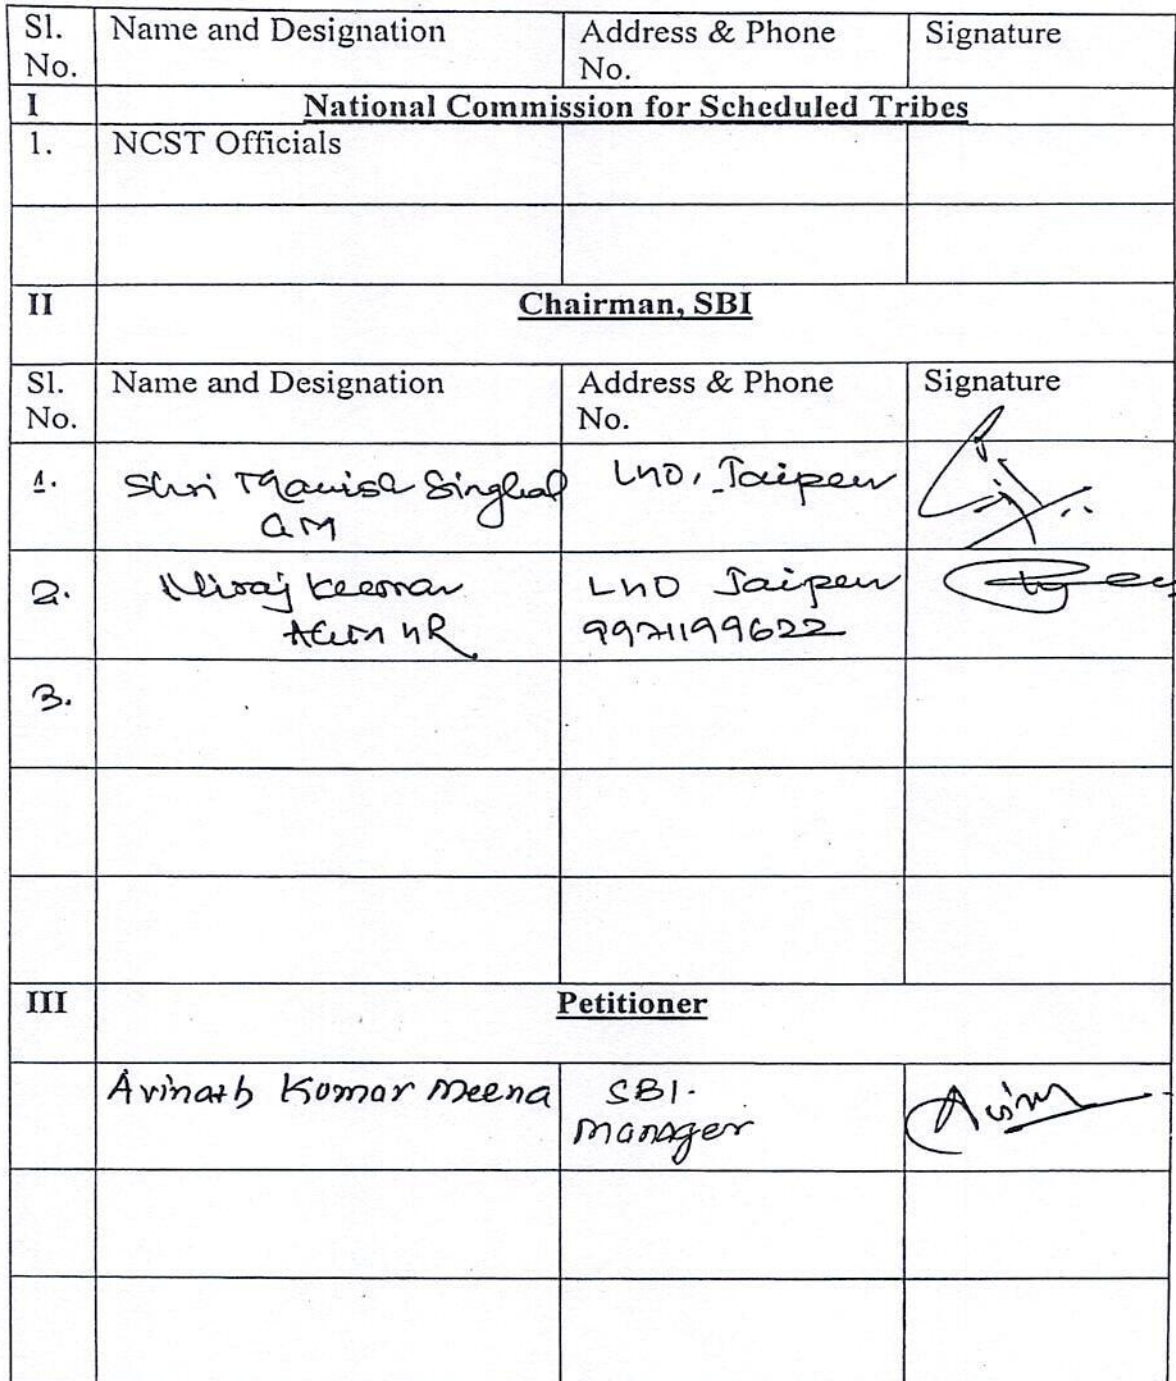 Sl. Name and Designation Address & Phone Signature
No. No.
I National Commission for Scheduled Tribes
1. NCST Officials
II Chairman, SBI
Sl. Name and Designation Address & Phone Signature
No. No.
1. Shri Manish Singhal LHO, Jaipur
GM
2. Niraj Kumar LHO Jaipur
HR 9971199622
3.
III Petitioner
Avinash Kumar Meena SBI.
Manager